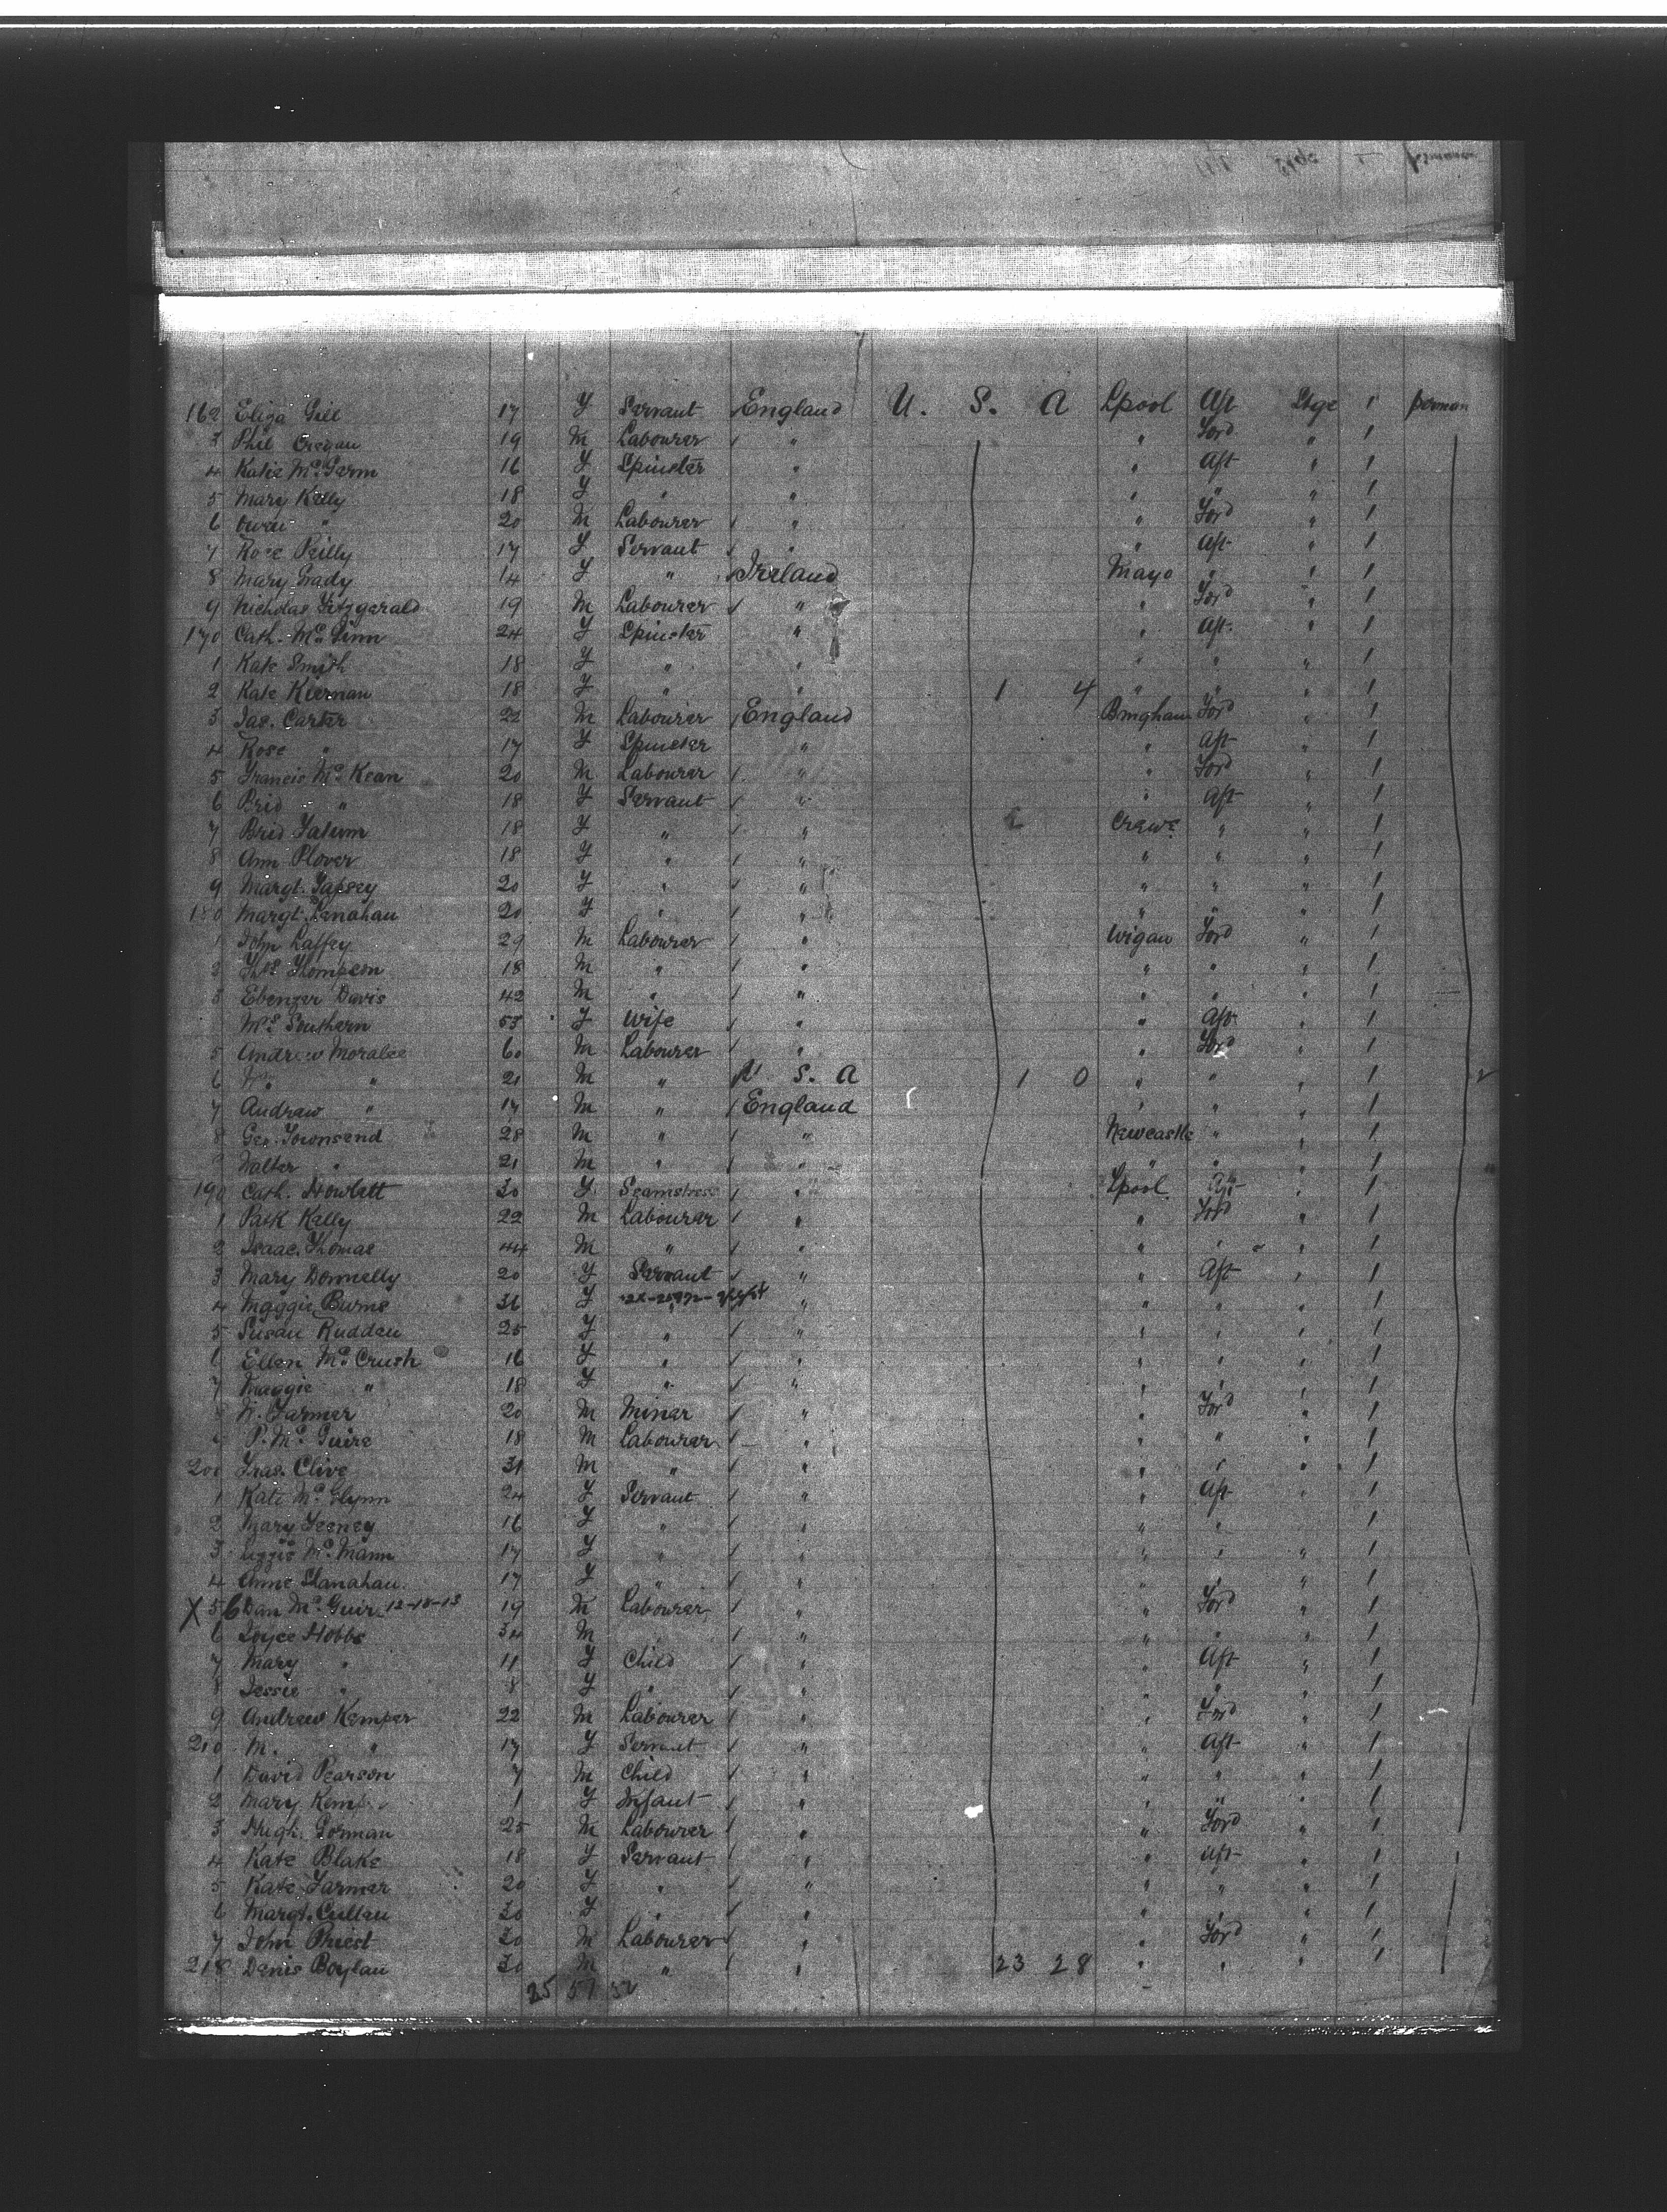 162 Eliza Gill 17 F Servant England U. S. A Lpool Aft Stge 1 perman
3 Phil Cregan 19 M Labourer / " " Ford " 1
4 Katie McGarm 16 F Spinster " " Aft " 1
5 Mary Kelly 18 F " " " " " 1
6 Owen " 20 M Labourer / " " Ford " 1
7 Rose Reilly 17 F Servant / " " Aft " 1
8 Mary Grady 14 F " / Ireland Mayo " " 1
9 Nicholas Fitzgerald 19 M Labourer / " " Ford " 1
170 Cath. McGinn 24 F Spinster " " Aft " 1
1 Kate Smith 18 F " " " " " 1
2 Kate Kiernan 18 F " " 1 4 " " " 1
3 Jas. Carter 22 M Labourer / England Bmgham Ford " 1
4 Rose " 17 F Spinster " " Aft " 1
5 Francis McKean 20 M Labourer / " " Ford " 1
6 Brid " 18 F Servant / " " Aft " 1
7 Brid 18 F " / " Crewe " " 1
8 Ann Plover 18 F " / " " " " 1
9 Margt. 20 F " / " " " " 1
180 Margt. Lenahan 20 F " / " " " " 1
1 John Laffey 29 M Labourer / " Wigan Ford " 1
2 Thos Thompson 18 M " / " " " " 1
3 Ebenzer Davis 42 M " / " " " " 1
Mrs Southern 53 F Wife / " " Aft " 1
5 Andrew Moralee 60 M Labourer / " " Ford " 1
6 Wm " 21 M " U S. A 1 0 " " " 1
7 Andrew " 17 M " / England " " " 1
8 Geo. Townsend 28 M " / " Newcastle " " 1
Walter " 21 M " / " " " " 1
190 Cath. Howlett 30 F Seamstress / " Lpool Aft " 1
1 Patk Kelly 22 M Labourer / " " Ford " 1
2 Isaac Thomas 44 M " / " " " " 1
3 Mary Donnelly 20 F Servant / " " Aft " 1
4 Maggie Burns 31 F " " " " 1
5 Susan Rudden 25 F " / " " " " 1
6 Ellen McCrush 16 F " / " " " " 1
7 Maggie " 18 F " / " " " " 1
W. Farmer 20 M Miner / " " Ford " 1
P. McGuire 18 M Labourer / " " " " 1
200 Fras. Clive 31 M " / " " " " 1
1 Kate McGlynn 24 F Servant / " " Aft " 1
2 Mary Feeney 16 F " / " " " " 1
3 Lizzie McMann 17 F " / " " " " 1
4 Anne Shanahan 17 F " / " " " " 1
X 5 6 Dan McGuir 12-18-13 19 M Labourer / " " Ford " 1
6 Joyce Hobbs 34 M " / " " " " 1
7 Mary " 11 F Child / " " Aft " 1
8 Jessie " 8 F " / " " " " 1
9 Andrew Kemper 22 M Labourer / " " Ford " 1
210 M. " 17 F Servant / " " Aft " 1
1 David Pearson 7 M Child / " " " " 1
2 Mary 1 F Infant / " " " " 1
3 Hugh Gorman 25 M Labourer / " " Ford " 1
4 Kate Blake 18 F Servant / " " Aft " 1
5 Kate Farmer 20 F " / " " " " 1
6 Margt. Cullen 30 F " / " " " " 1
7 John Priest 30 M Labourer / " " Ford " 1
218 Denis Boylan 30 M " / " 23 28 " " " 1
25 57 52